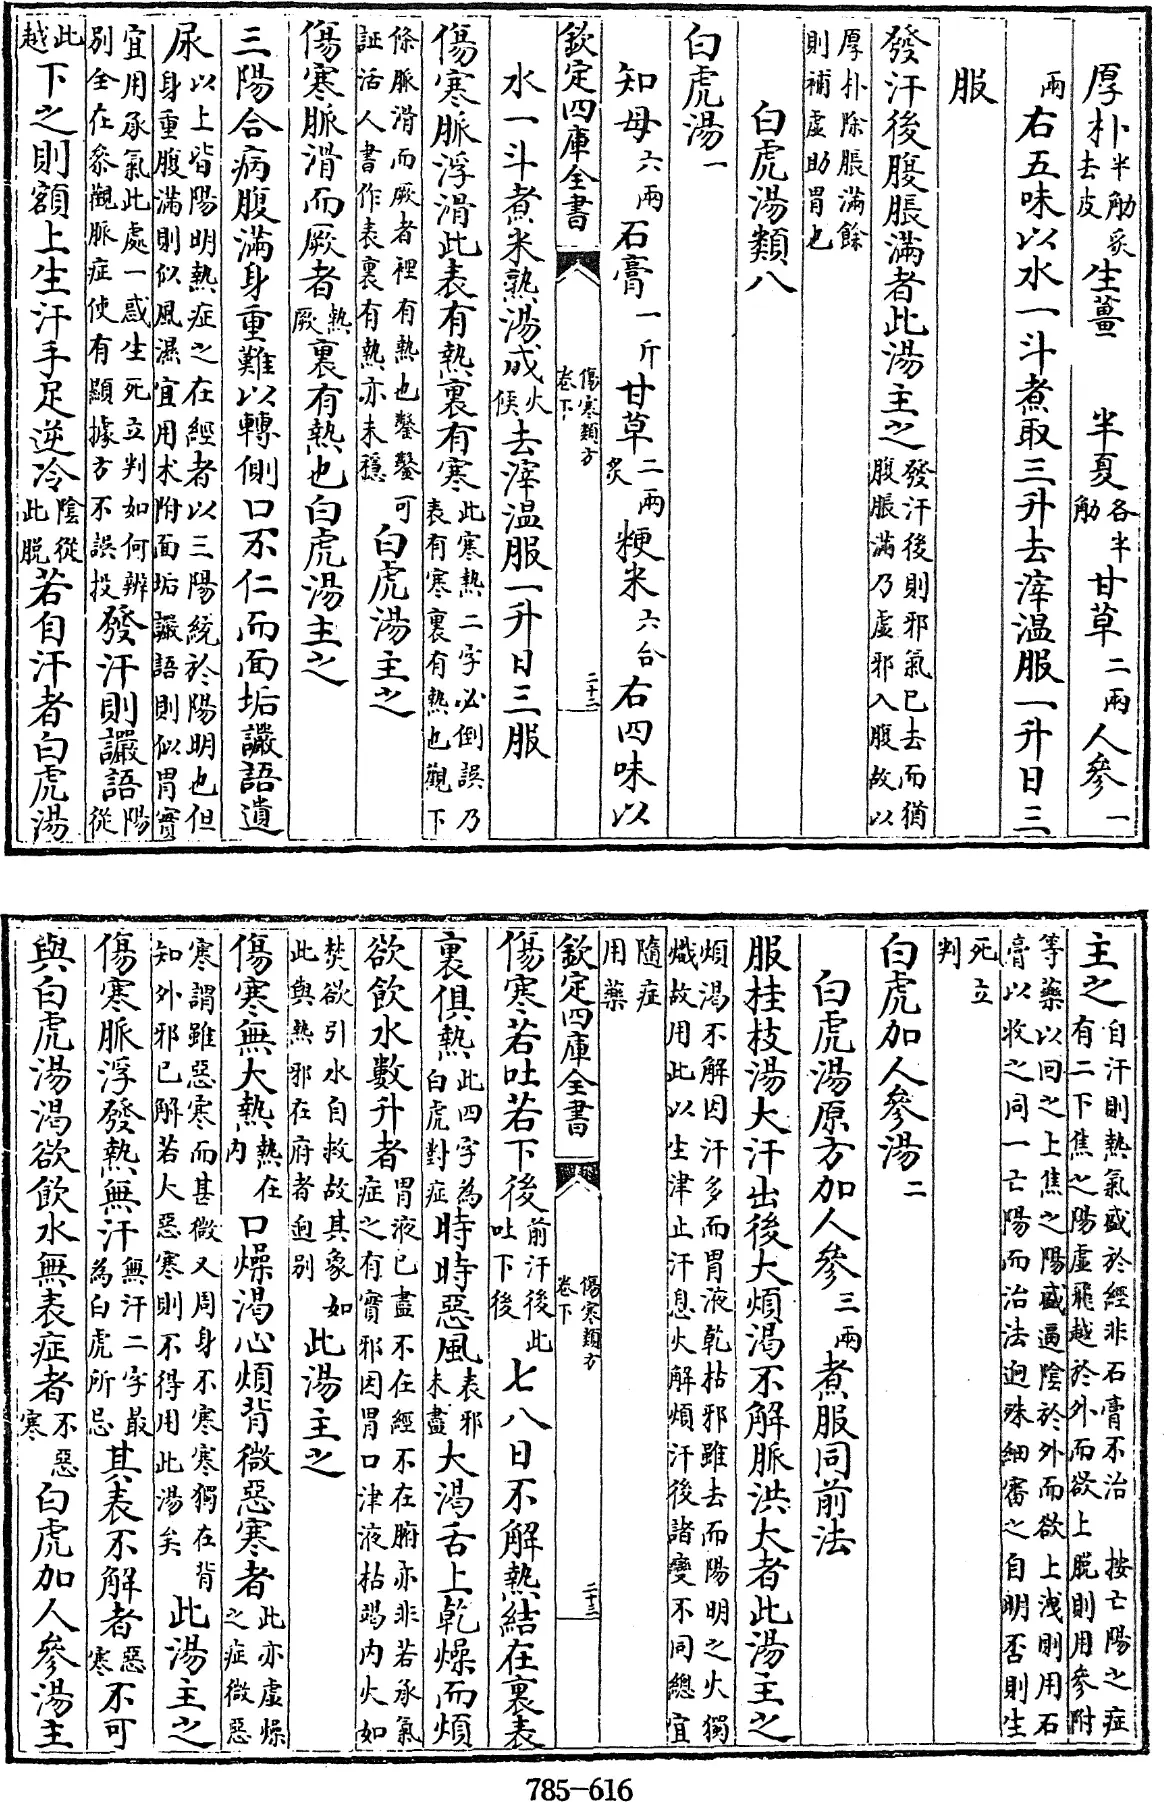 厚朴半觔炙去皮生薑　半夏各半觔甘草二兩人參一
兩右五味以水一斗煮取三升去滓温服一升日三
服
發汗後腹脹滿者此湯主之發汗後則邪氣已去而猶腹脹滿乃虛邪入腹故以
厚朴除脹滿餘則補虛助胃也
白虎湯類八
白虎湯一
知母六兩石膏一斤甘草二兩炙粳米六合右四味以
欽定四庫全書　傷寒類方卷下　二十三
水一斗煮米熟湯成火候去滓温服一升日三服
傷寒脈浮滑此表有熱裏有寒此寒熱二字必倒誤乃表有寒裏有熱也觀下
條脈滑而厥者裡有熱也鑿鑿可証活人書作表裏有熱亦未穩白虎湯主之
傷寒脈滑而厥者熱厥裏有熱也白虎湯主之
三陽合病腹滿身重難以轉側口不仁而面垢讝語遺
尿以上皆陽明熱症之在經者以三陽統於陽明也但身重腹滿則似風濕宜用术附面垢讝語則似胃實
宜用承氣此處一惑生死立判如何辨別全在叅觀脈症使有顯據方不誤投發汗則讝語陽從
此越下之則額上生汗手足逆冷陰從此脱若自汗者白虎湯
主之自汗則熱氣盛於經非石膏不治　按亡陽之症有二下焦之陽虛飛越於外而欲上脱則用參附
等藥以回之上焦之陽盛逼陰於外而欲上洩則用石膏以收之同一亡陽而治法迥殊細審之自明否則生
死立判
白虎加人參湯二
白虎湯原方加人參三兩煮服同前法
服桂枝湯大汗出後大煩渴不解脈洪大者此湯主之
煩渴不解因汗多而胃液乾枯邪雖去而陽明之火獨熾故用此以生津止汗息火解煩汗後諸變不同總宜
隨症用藥
欽定四庫全書　傷寒類方卷下　二十三
傷寒若吐若下後前汗後此吐下後七八日不解熱結在裏表
裏俱熱此四字為白虎對症時時惡風表邪未盡大渴舌上乾燥而煩
欲飲水數升者胃液已盡不在經不在腑亦非若承氣症之有實邪因胃口津液枯竭内火如
焚欲引水自救故其象如此與熱邪在府者迥别此湯主之
傷寒無大熱熱在内口燥渴心煩背微惡寒者此亦虛燥之症微惡
寒謂雖惡寒而甚微又周身不寒寒獨在背知外邪已解若大惡寒則不得用此湯矣此湯主之
傷寒脈浮發熱無汗無汗二字最為白虎所忌其表不解者惡寒不可
與白虎湯渴欲飲水無表症者不惡寒白虎加人參湯主
785-616